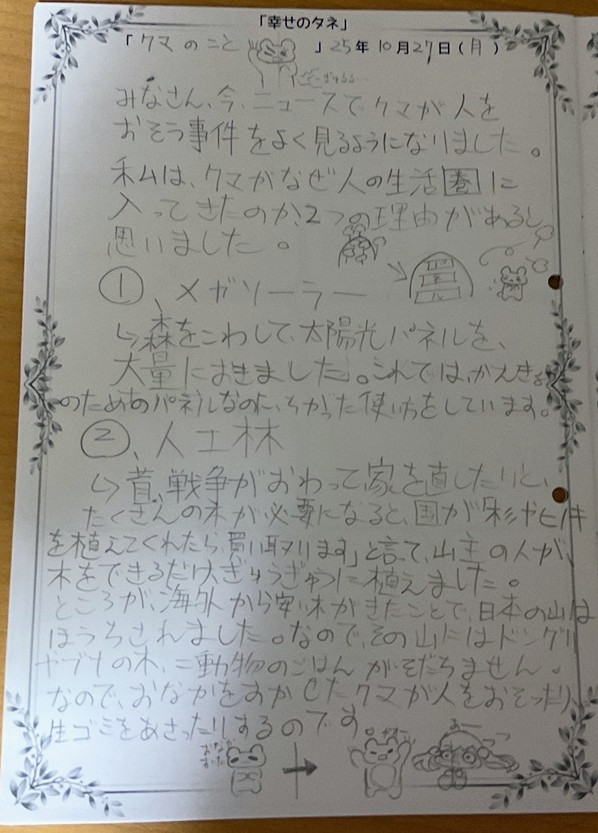 「幸せのタネ」
「クマのこと 」25年10月27日(月)
みなさん、今、ニュースで、クマが人を
おそう事件をよく見るようになりました。
私は、クマがなぜ人の生活圏に
入ってきたのか、2つの理由があると
思いました。
①、メガソーラー
↳森をこわして、太陽光パネルを、
大量におきました。これでは、かんきょう
のためのパネルなのに、ちがった使い方をしています。
②、人工林
↳昔、戦争がおわって家を直したりと、
たくさんの木が必要になると、国が「杉やヒノキ
を植えてくれたら、買い取ります」と言って、山主の人が、
木をできるだけ、ぎゅうぎゅうに植えました。
ところが、海外から安い木がきたことで、日本の山は
ほうちされました。なので、その山にはドングリ
やブナの木、=動物のごはんがそだちません。
なので、おなかをすかしたクマが人をおそったり、
生ゴミをあさったりするのです
おなか
すいた
→